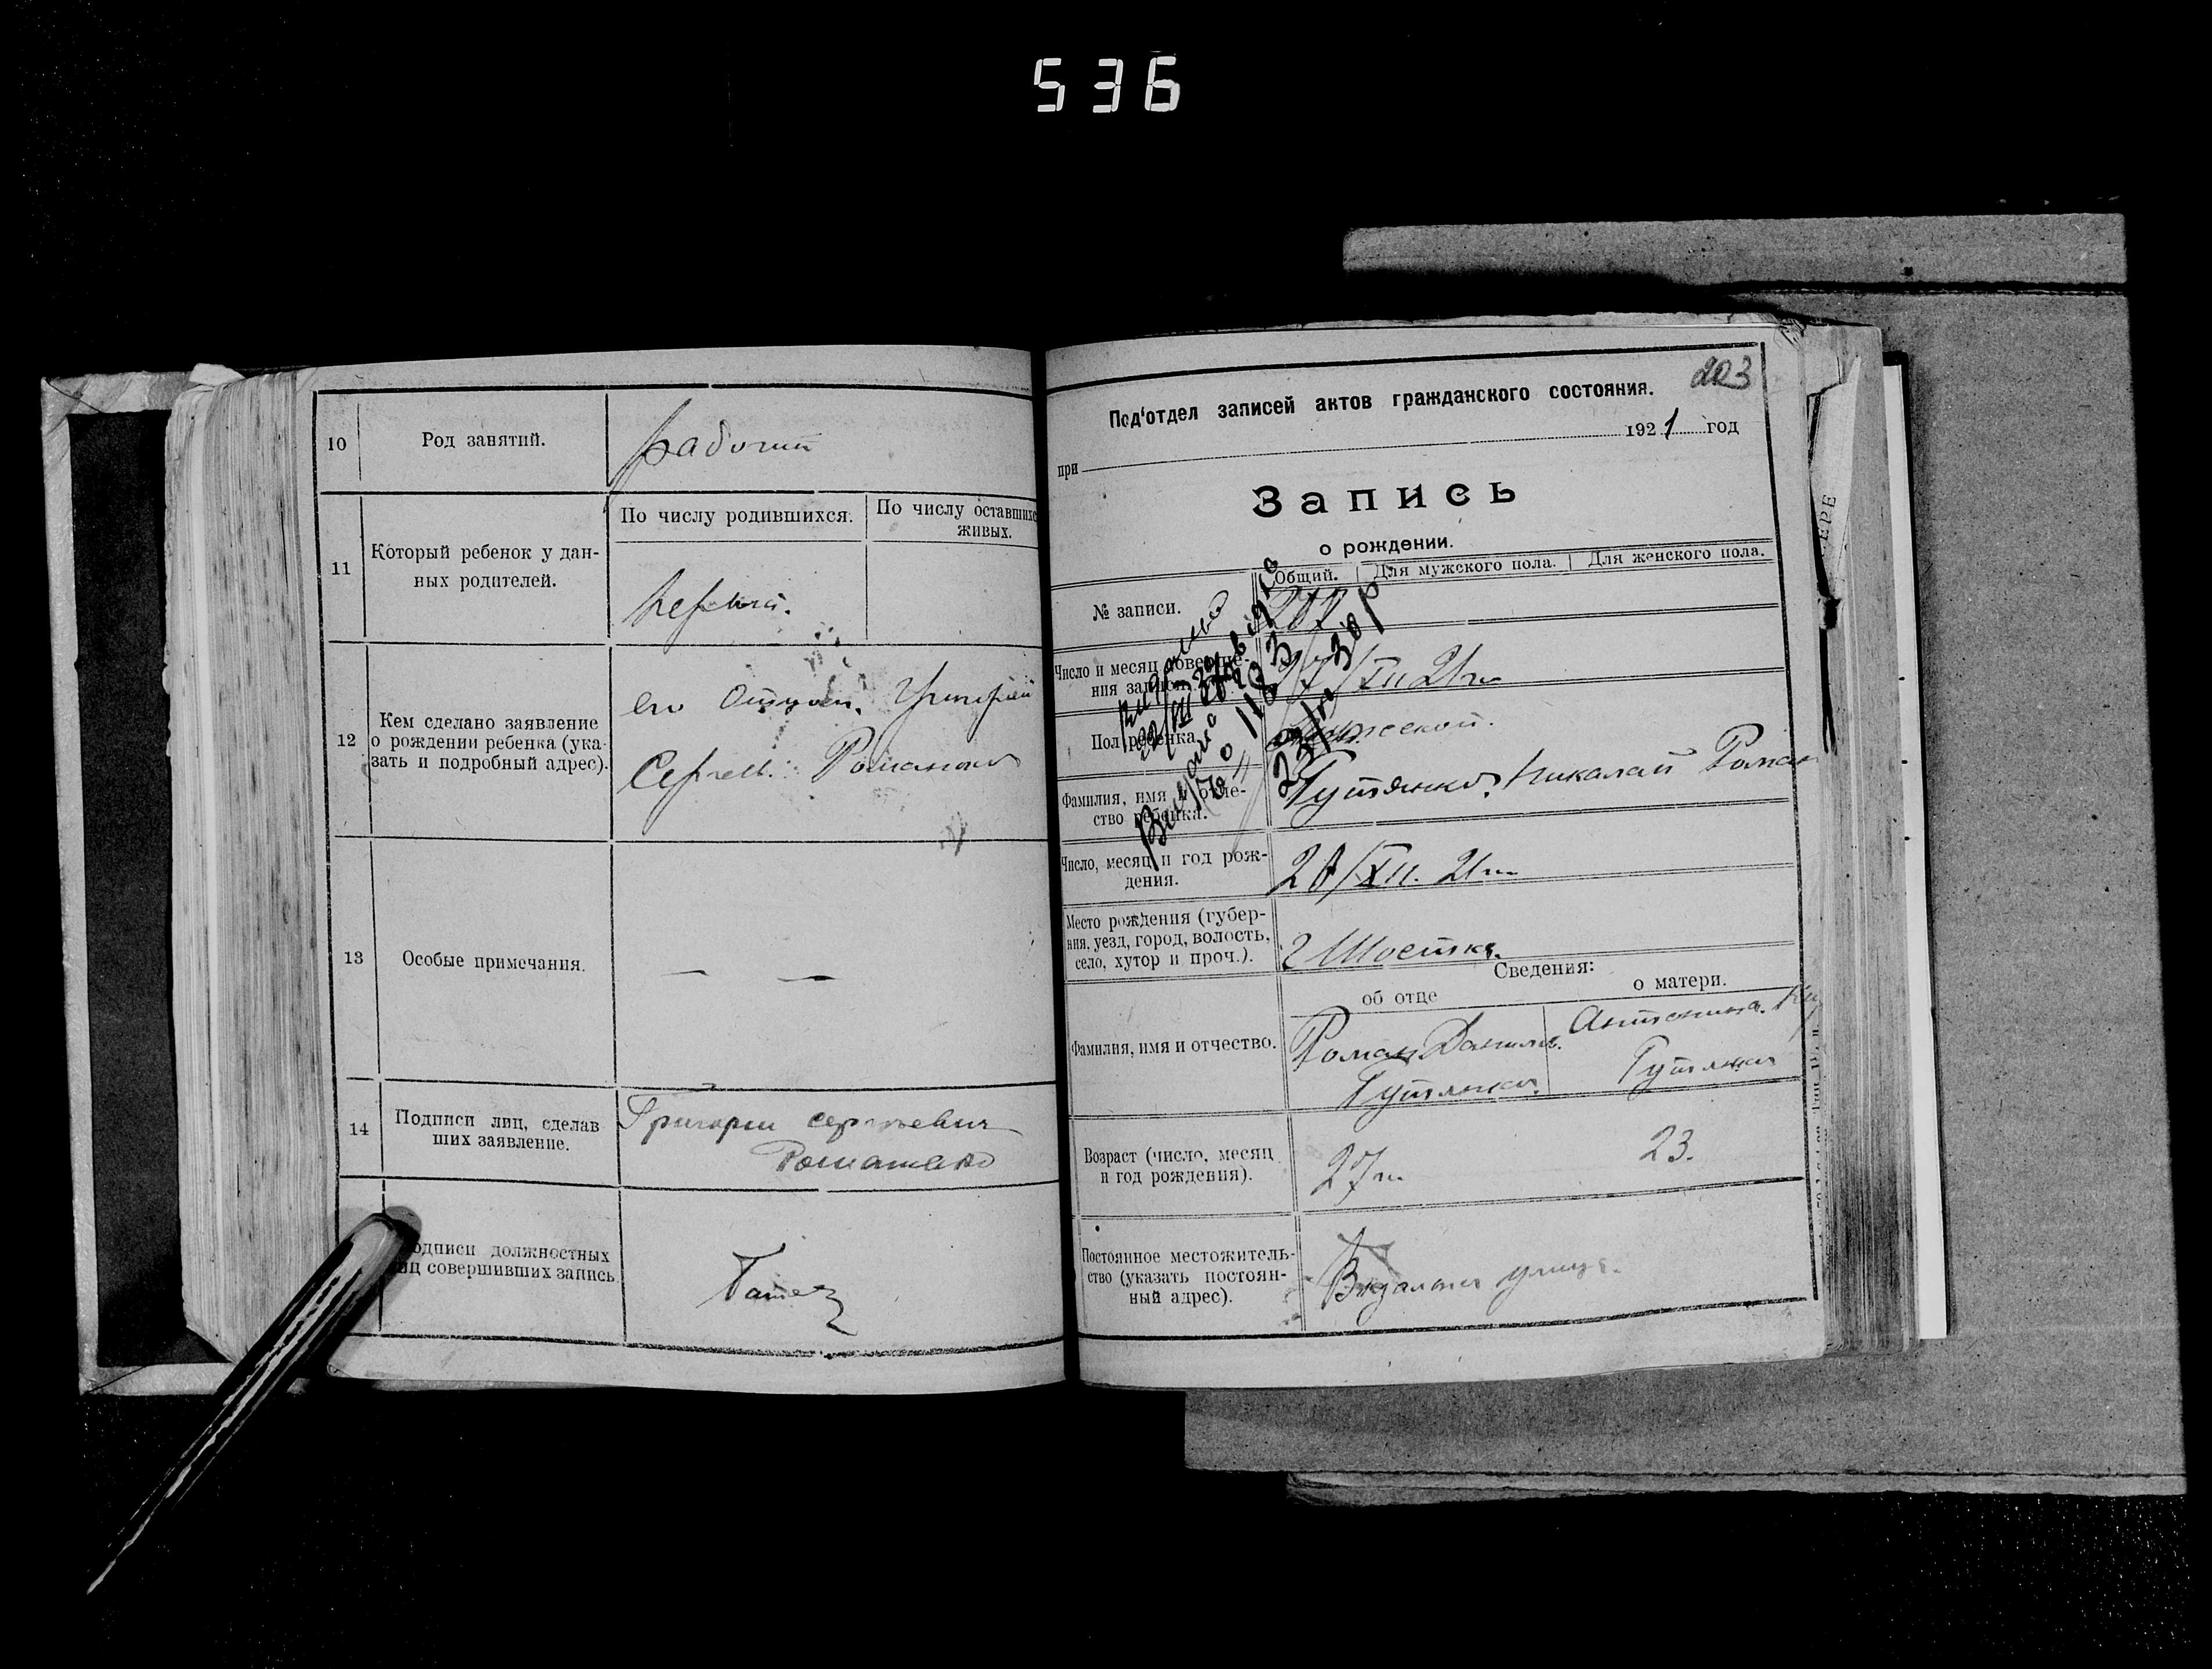 536
10
Род занятий.
рабочий
11
Который ребенок у дан-
ных родителей.
По числу родившихся.
По числу оставшихс
живых.
первый.
12
Кем сделано заявление
о рождении ребенка (ука-
зать и подробный адрес).
его отцом. Григорий
Сергеев. Романенко
13
Особые примечания.
— —
14
Подписи лиц, сделав
ших заявление.
Григорий сергеевич
Романенко
одписи должностных
иц совершивших запись
203
Под‘отдел записей актов гражданского состояния.
при
1921 год
Запись
о рождении.
Общий.
Для мужского пола.
Для женского пола.
№ записи.
Число и месяц соверше-
ния записи.
27/XII 21 г.
Пол ребенка.
мужской.
Фамилия, имя и отче-
ство ребенка.
Гутянко. Николай Роман
Число, месяц и год рож-
дения.
20/XII. 21 г.
Место рождения (губер-
ния, уезд, город, волость,
село, хутор и проч.).
г Шостка.
Сведения:
об отце
о матери.
Фамилия, имя и отчество.
Роман Данилов.
Гутянко.
Антонина.
Гутянко
Возраст (число, месяц
и год рождения).
27 г.
23.
Постоянное местожитель-
ство (указать постоян-
ный адрес).
Вокзальная улица.